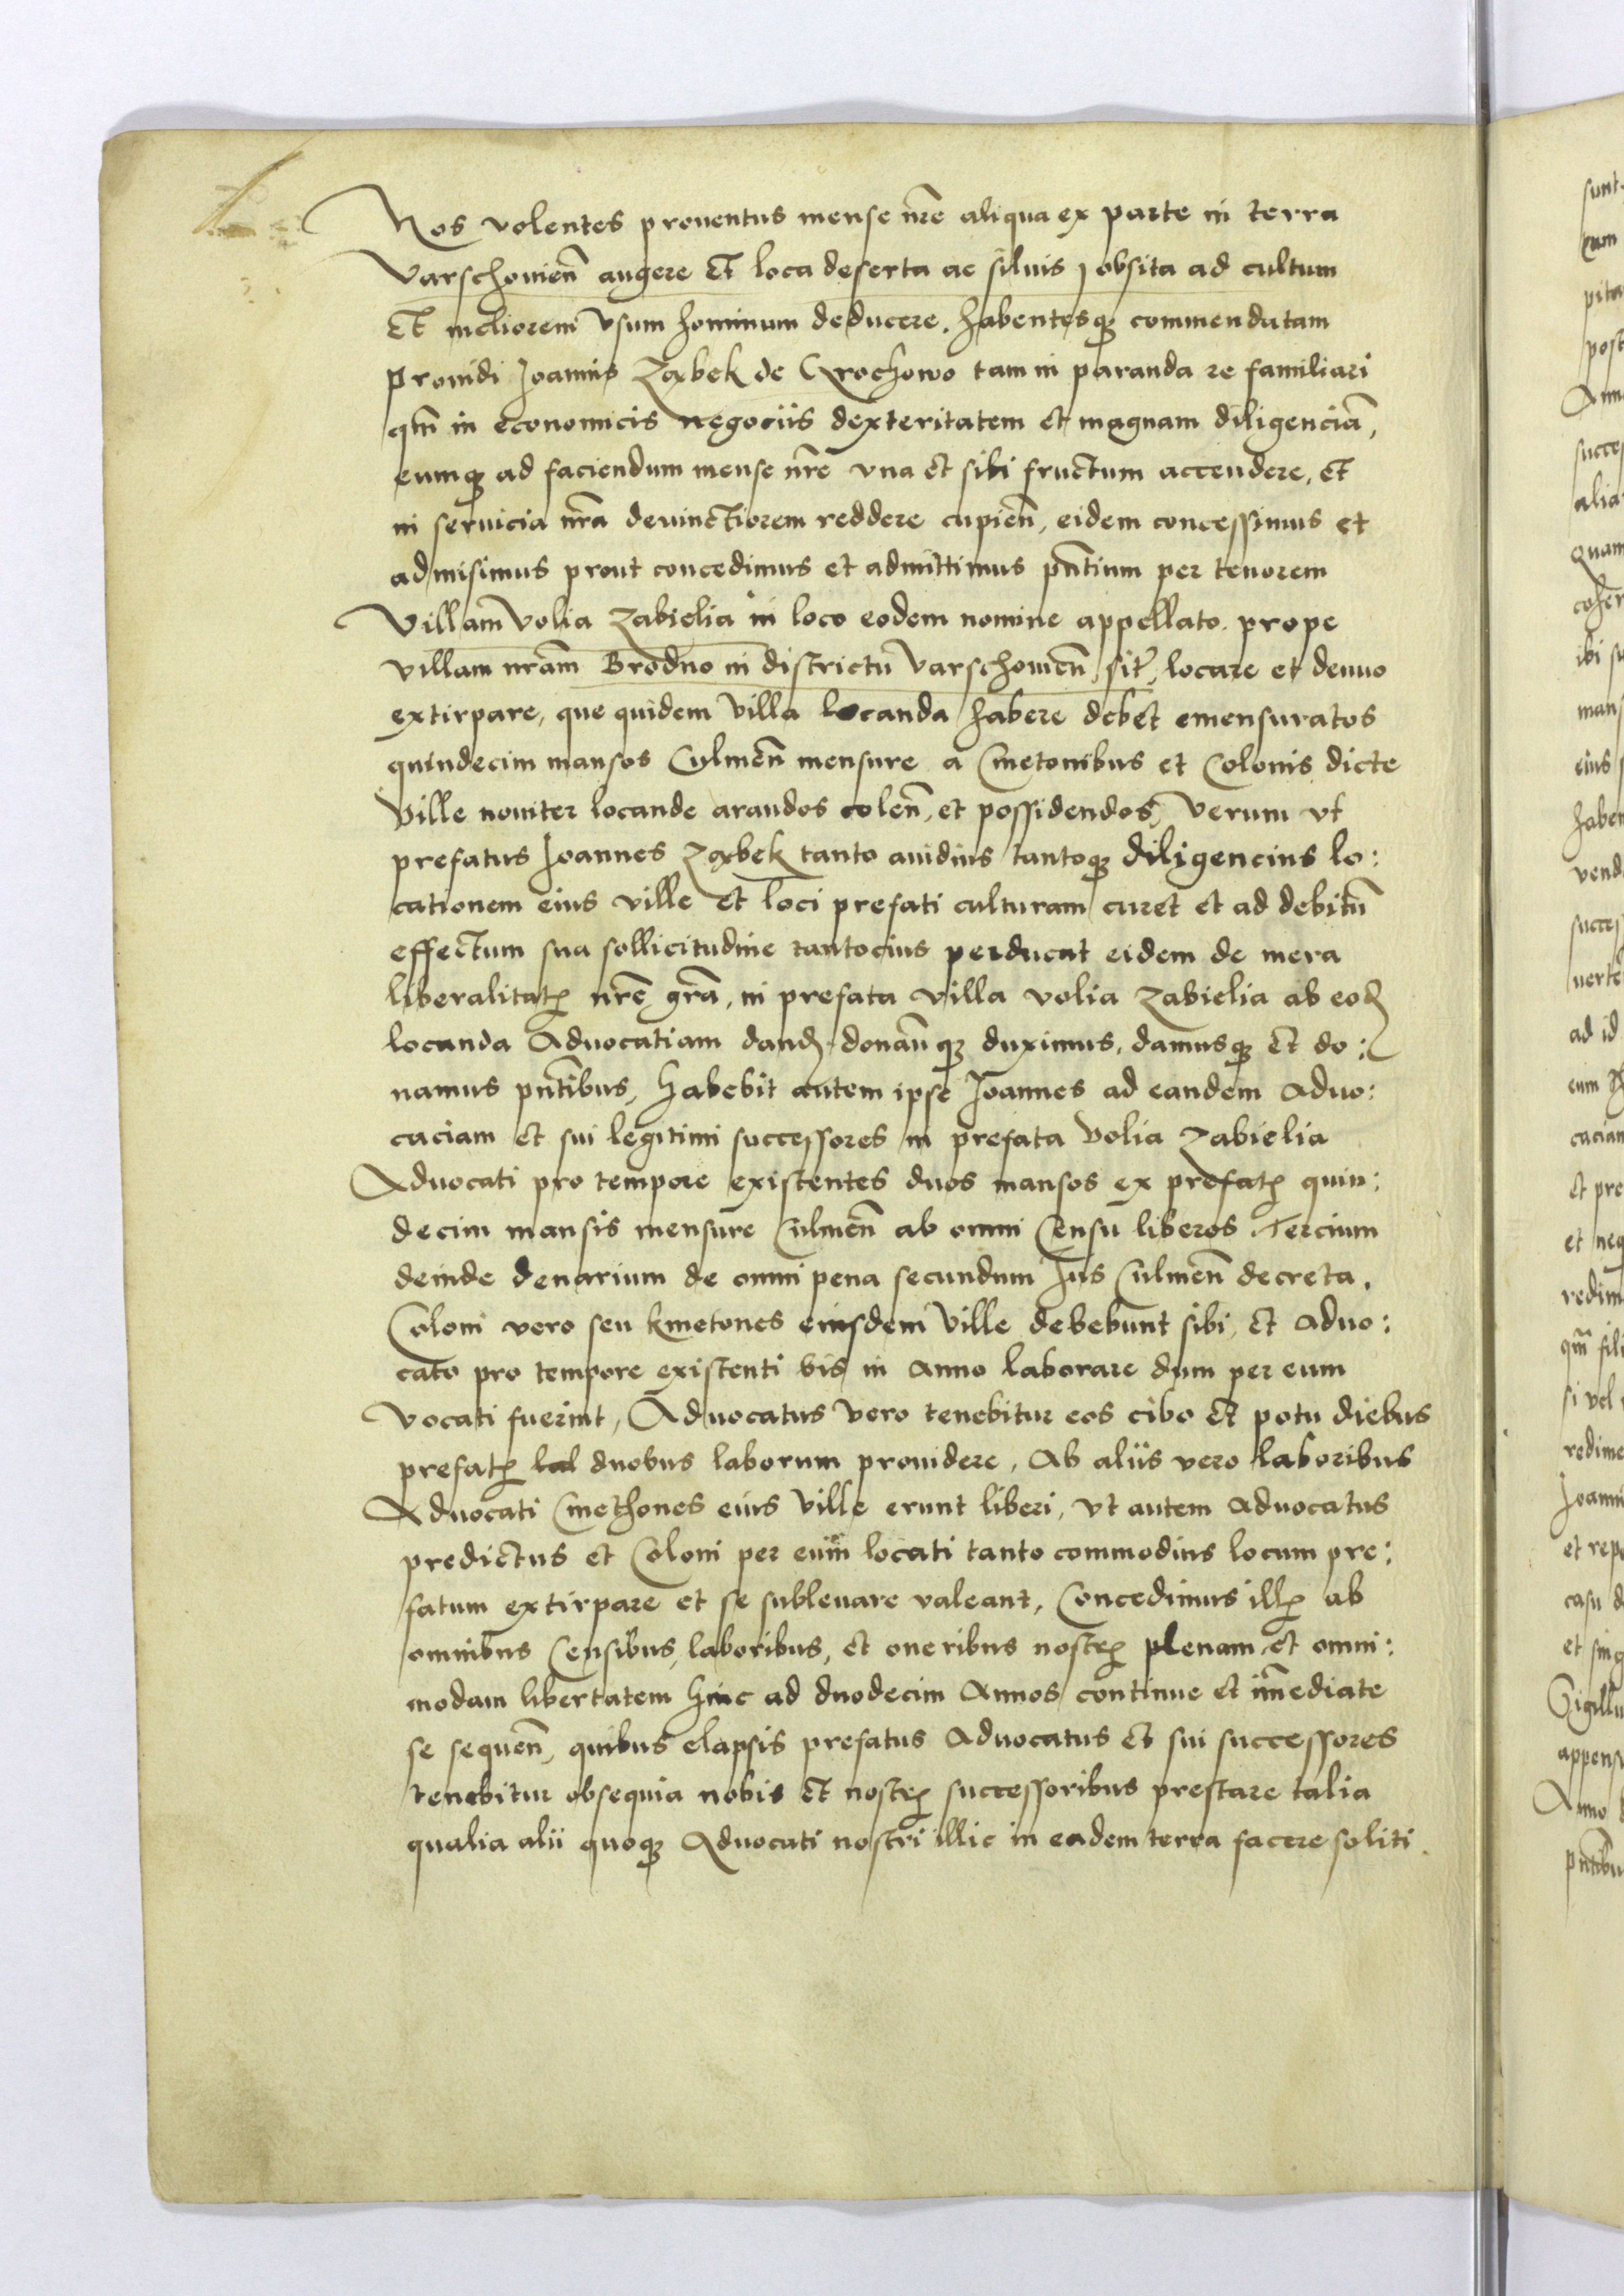 Nos volentes proventus mense nr̃e aliqua ex parte in terra
Varschovien̄ augere et loca deserta ac silvis obsita ad cultum
et meliorem usum hominum deducere, habentesqꝫ commendatam
providi Joannis Zabek de Grochowo tam in paranda re familiari
qm̄ in economicis negociis dexteritatem et magnam diligenciā,
eumqꝫ ad faciendum mense nr̃e una et sibi fructum accendere, et
in servicia nr̃a devinctiorem reddere cupien̄, eidem concessimus et
admisimus prout concedimus et admittimus pn̄tium per tenorem
Villam Volia Zabielia in loco eodem nomine appellato prope
villam nr̃am Brodno in districtu Varschovien̄ sit̃, locare et denuo
extirpare, que quidem villa locanda habere debet emensuratos
quindecim mansos Culmen̄ mensure a Cmetonibus et Colonis dicte
Ville noviter locande arandos colen̄, et possidendos, Verum ut
prefatus Joannes Zabek tanto avidius tantoqꝫ diligencius lo:
cationem eius ville et loci prefati culturam curet et ad debitū
effectum sua sollicitudine tantocius perducat eidem de mera
liberalitatꝭ nr̃e gr̃a, in prefata villa volia Zabielia ab eodꝭ
locanda Advocatiam dandꝭ donan̄qꝫ duximus, damusqꝫ et do:
namus pn̄tibus, Habebit autem ipse Joannes ad eandem Advo:
caciam et sui legitimi successores in prefata Volia Zabielia
Advocati pro tempore existentes duos mansos ex prefatꝭ quin:
decim mansis mensure Culmen̄ ab omni Censu liberos Tercium
deinde denarium de omni pena secundum Jus Culmen̄ decreta.
Coloni vero seu kmetones eiusdem Ville debebunt sibi, et Advo:
cato pro tempore existenti bis in Anno laborare dum per eum
vocati fuerint, Advocatus vero tenebitur eos cibo et potu diebus
prefatꝭ duobus laborum providere, Ab aliis vero laboribus
Advocati Cmethones eius Ville erunt liberi, Ut autem Advocatus
predictus et Coloni per eum locati tanto commodius locum pre:
fatum extirpare et se sublevare valeant, Concedimus illꝭ ab
omnibus Censibus, laboribus, et oneribus nostrꝭ plenam et omni:
modam libertatem hinc ad duodecim Annos continue et im̄ediate
se sequen̄, quibus elapsis prefatus Advocatus et sui successores
tenebitur obsequia nobis et nostrꝭ successoribus prestare talia
qualia alii quoqꝫ Advocati nostri illic in eadem terra facere soliti